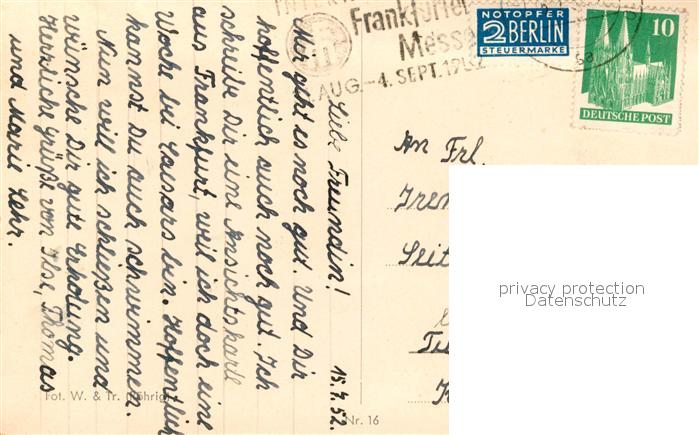 Frankfurter
Messe
AUG.–4. SEPT. 19
NOTOPFER
2 BERLIN
STEUERMARKE
10
DEUTSCHE POST
15.7.52.
Liebe Freundin!
Mir geht es noch gut. Und Dir
hoffentlich auch noch gut. Ich
schreibe Dir eine Ansichtskarte
aus Frankfurt, weil ich doch eine
Woche bei Kaisars bin. Hoffentlich
kannst Du auch schwimmen.
Nun will ich schließen und
wünsche Dir gute Erholung.
Herzliche Grüße von Ilse, Thomas
und Marie Lehr.
An Frl.
Fot. W. & Tr. (Röhrig)
Nr. 16
privacy protection
Datenschutz